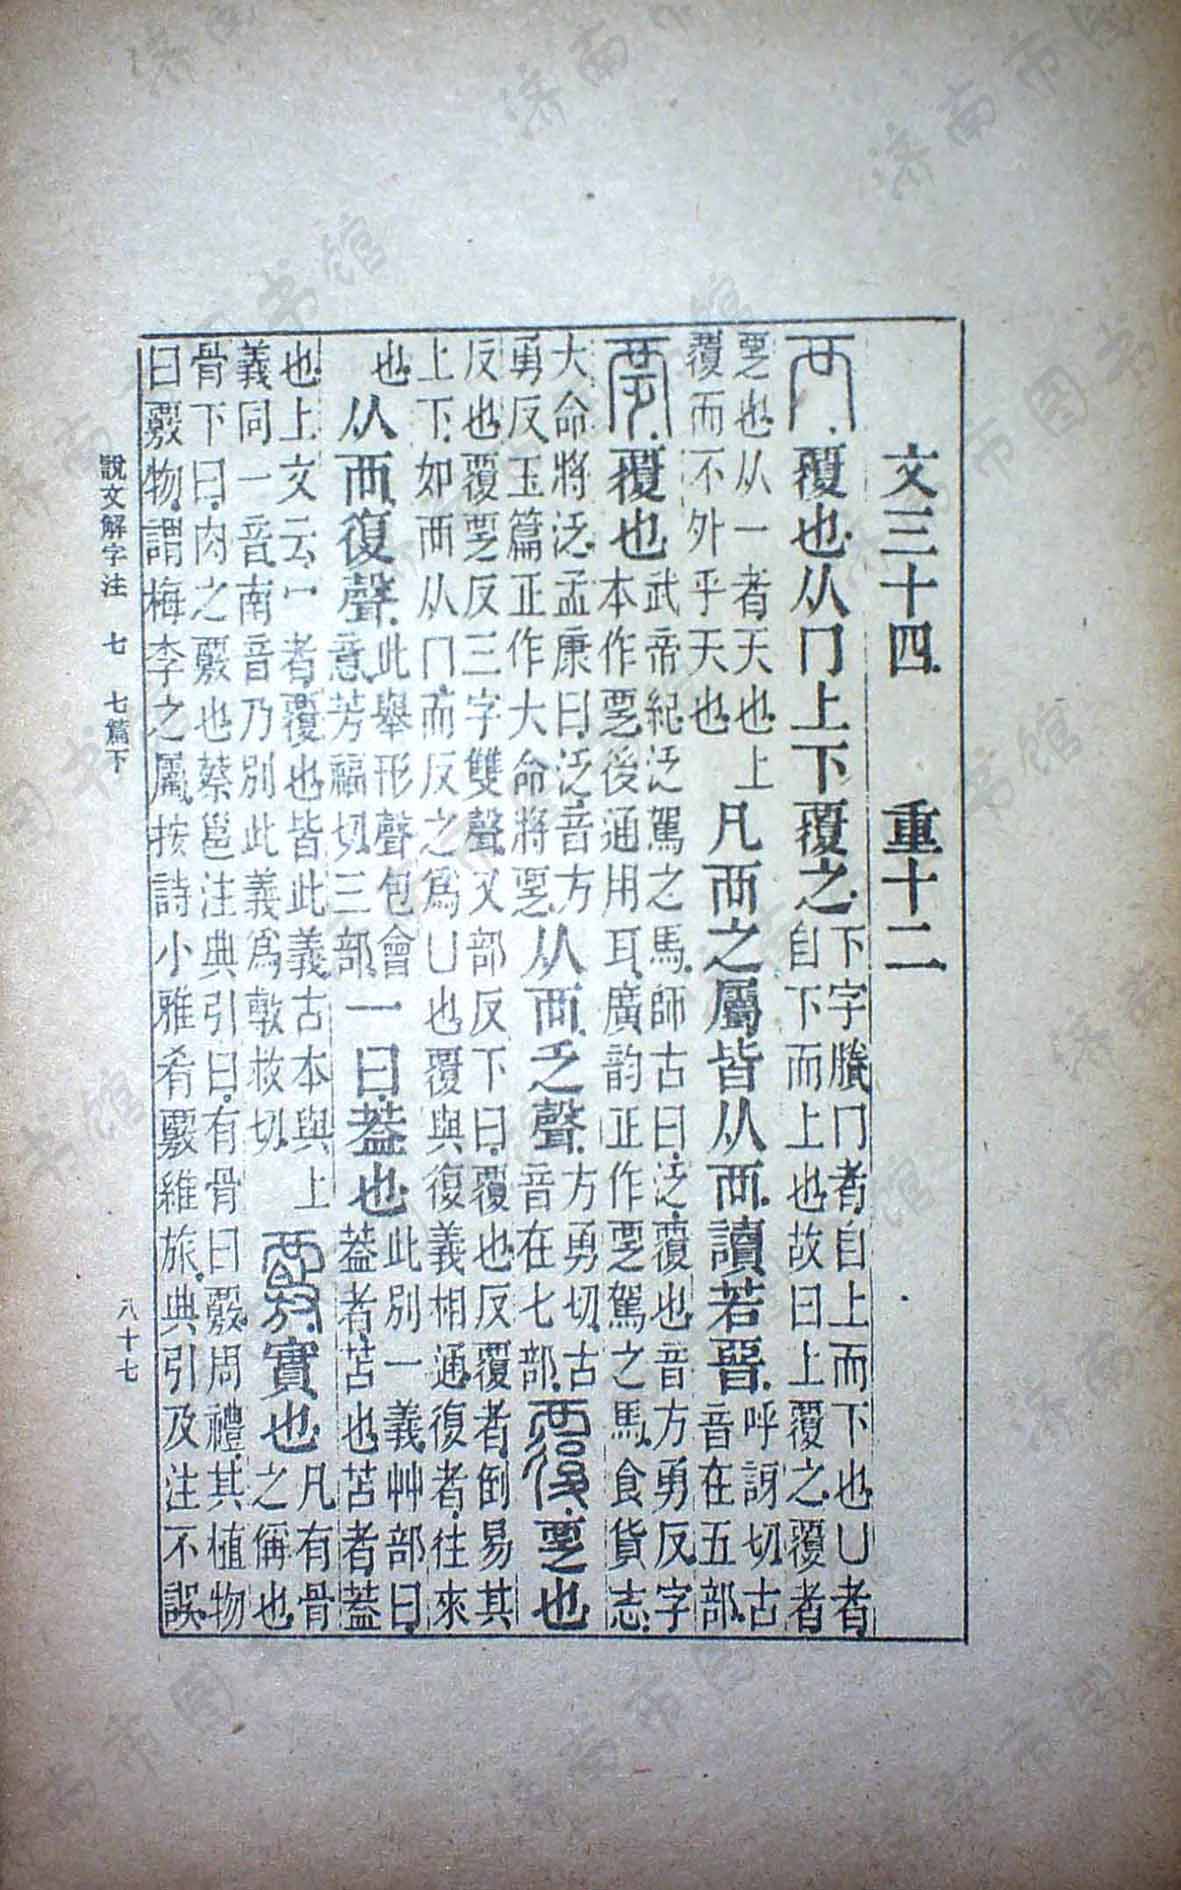 文三十四　重十二
襾覆也从冂上下覆之
下字賸冂者自上而下也凵者
自下而上也故曰上覆之覆者
覂也从一者天也上
覆而不外乎天也
凡襾之屬皆从襾讀若晋
呼訝切古
音在五部
覂覆也
武帝紀泛駕之馬師古曰泛覆也音方勇反字
本作覂後通用耳廣韵正作覂駕之馬食貨志
大命將泛孟康曰泛音方
勇反玉篇正作大命將覂
从襾乏聲
方勇切古
音在七部
覆覂也
反也覆覂反三字雙聲又部反下曰覆也反覆者倒易其
上下如襾从冂而反之爲凵也覆與復義相通復者往來
也
从襾復聲
此舉形聲包會
意芳福切三部
一曰葢也
此別一義艸部曰
葢者苫也苫者葢
也上文云冖者覆也皆此義古本與上
義同一音南音乃別此義爲敷救切
覈實也
凡有骨
之偁也
骨下曰肉之覈也蔡邕注典引曰有骨曰覈周禮其植物
曰覈物謂梅李之屬按詩小雅肴覈維旅典引及注不誤
說文解字注　七　七篇下　八十七
济南市图书馆